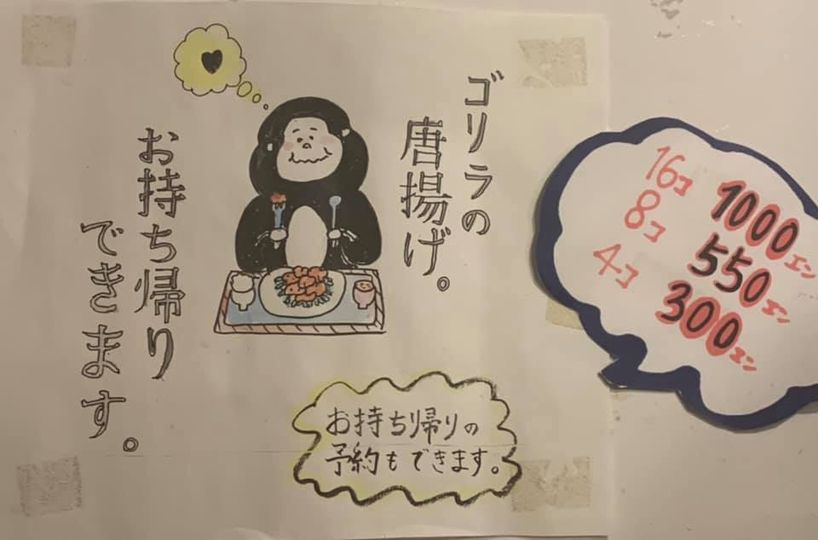 ゴリラの
唐揚げ。
お持ち帰り
できます。
お持ち帰りの
予約もできます。
16コ 1000エン
8コ 550エン
4コ 300エン